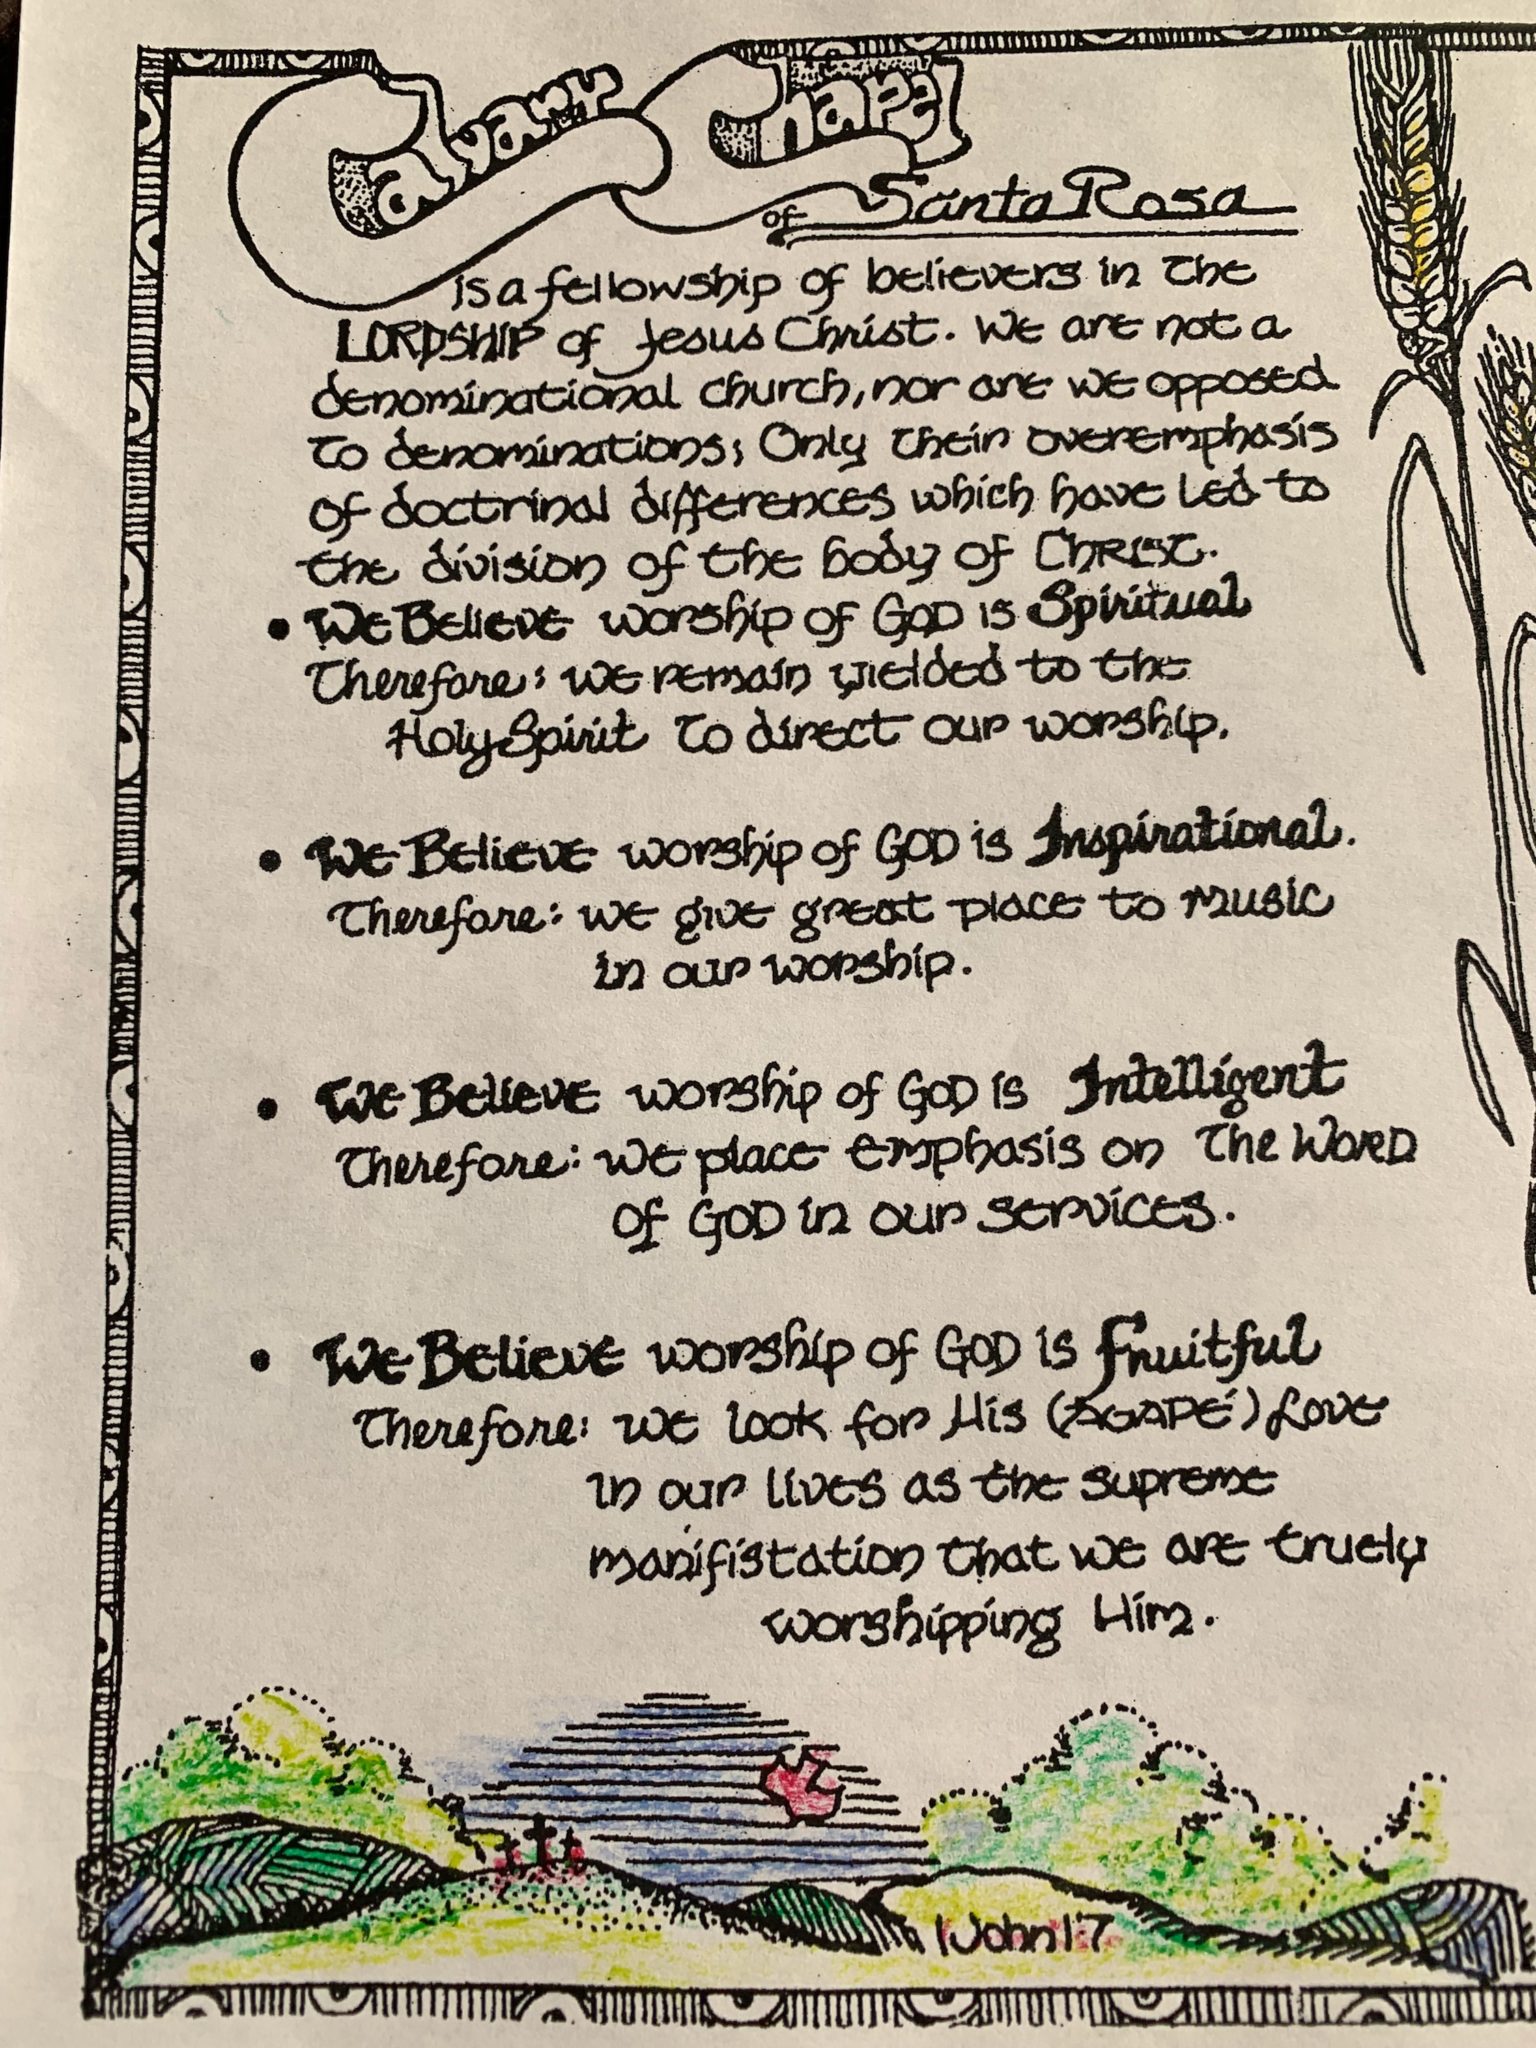 Calvary Chapel
of Santa Rosa
is a fellowship of believers in the
LORDSHIP of Jesus Christ. We are not a
denominational church, nor are we opposed
to denominations; Only their overemphasis
of doctrinal differences which have led to
the division of the body of CHRIST.
• We Believe worship of GOD is Spiritual
Therefore: we remain yielded to the
Holy Spirit to direct our worship.
• We Believe worship of GOD is Inspirational.
Therefore: we give great place to music
in our worship.
• We Believe worship of GOD is Intelligent
Therefore: we place emphasis on The WORD
of GOD in our services.
• We Believe worship of GOD is Fruitful
Therefore: we look for His (AGAPÉ) Love
in our lives as the supreme
manifistation that we are truely
worshipping Him.
1 John 1:7